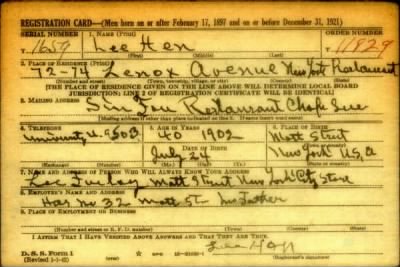 REGISTRATION CARD—(Men born on or after February 17, 1897 and on or before December 31, 1921)
SERIAL NUMBER 1. NAME (Print) ORDER NUMBER
Lee Hen 11929
(First) (Middle) (Last)
2. PLACE OF RESIDENCE (Print)
72-74 Lenox Avenue New York Restaurant
(Number and street) (Town, township, village, or city) (County) (State)
[THE PLACE OF RESIDENCE GIVEN ON THE LINE ABOVE WILL DETERMINE LOCAL BOARD
JURISDICTION; LINE 2 OF REGISTRATION CERTIFICATE WILL BE IDENTICAL]
3. MAILING ADDRESS
Restaurant
[Mailing address if other than place indicated on line 2. If same insert word same]
4. TELEPHONE 5. AGE IN YEARS 6. PLACE OF BIRTH
40 1902 Mott Street
DATE OF BIRTH
July 24 New York U.S.A
(Exchange) (Number) (Mo.) (Day) (Yr.) (State or country)
7. NAME AND ADDRESS OF PERSON WHO WILL ALWAYS KNOW YOUR ADDRESS
Lee Mott Street New York City Store
8. EMPLOYER'S NAME AND ADDRESS
No 32 Mott St Father
9. PLACE OF EMPLOYMENT OR BUSINESS
(Number and street or R. F. D. number) (Town) (County) (State)
I AFFIRM THAT I HAVE VERIFIED ABOVE ANSWERS AND THAT THEY ARE TRUE.
D. S. S. Form 1
(Revised 1-1-42) (over) (Registrant's signature)